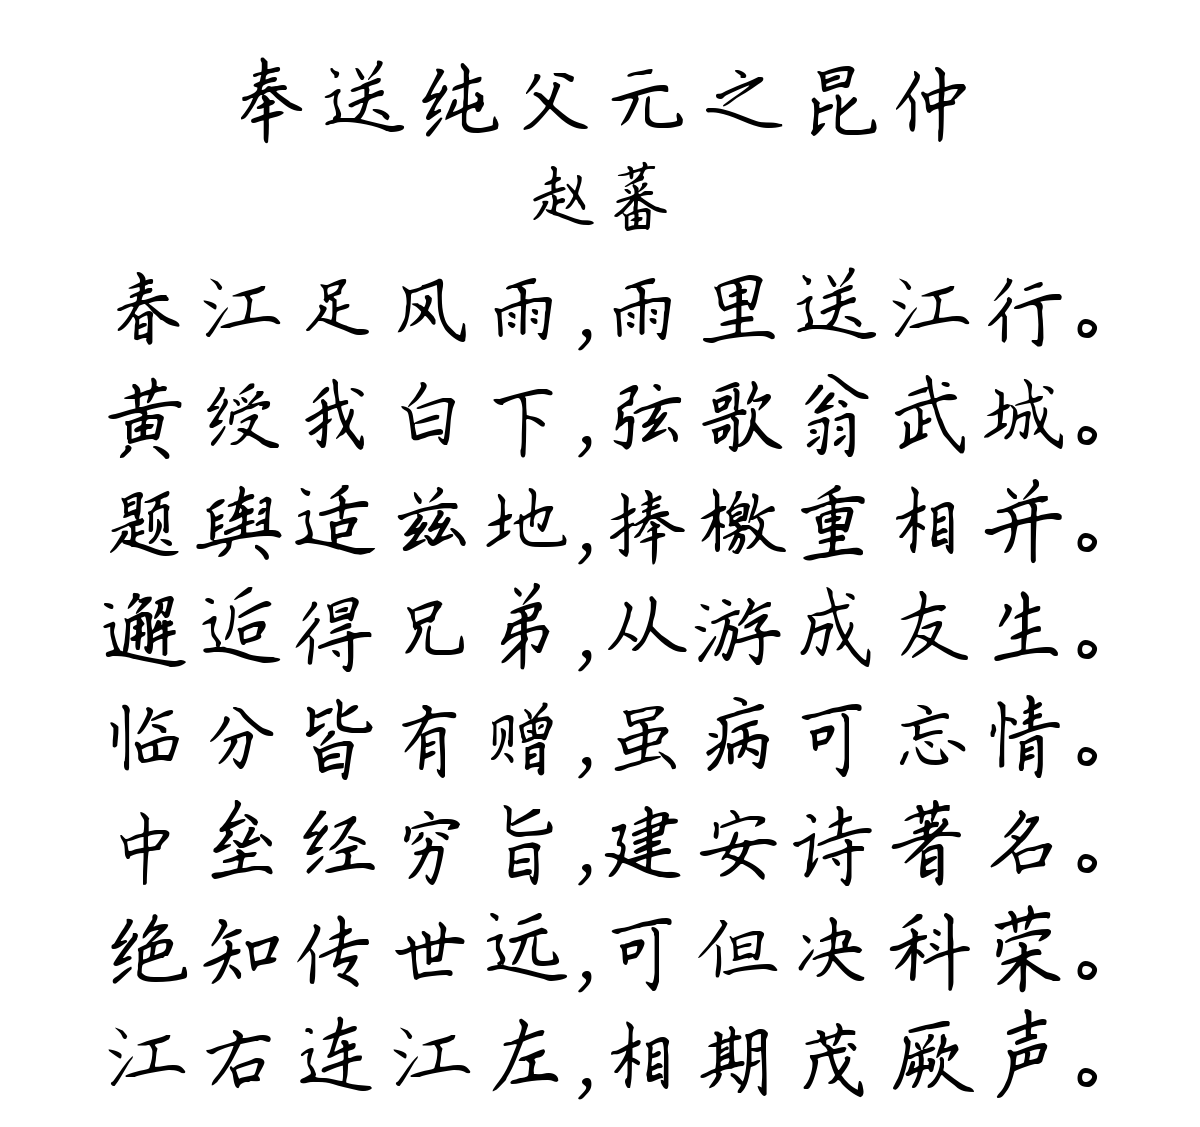 奉送纯父元之昆仲
赵蕃
春江足风雨,雨里送江行。
黄绶我白下,弦歌翁武城。
题舆适兹地,捧檄重相并。
邂逅得兄弟,从游成友生。
临分皆有赠,虽病可忘情。
中垒经穷旨,建安诗著名。
绝知传世远,可但决科荣。
江右连江左,相期茂厥声。